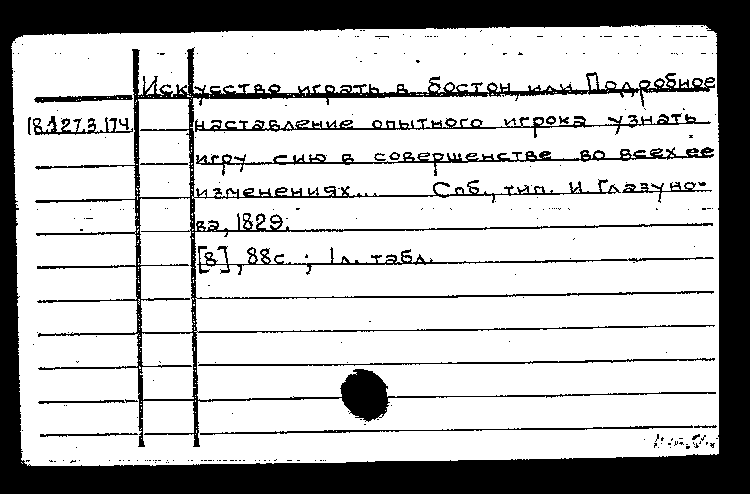 Искусство играть в бостон, или Подробное
18.127.3.174
наставление опытного игрока узнать
игру сию в совершенстве во всех ее
изменениях... Спб., тип. И. Глазуно-
ва, 1829.
[8], 88с. ; 1л. табл.